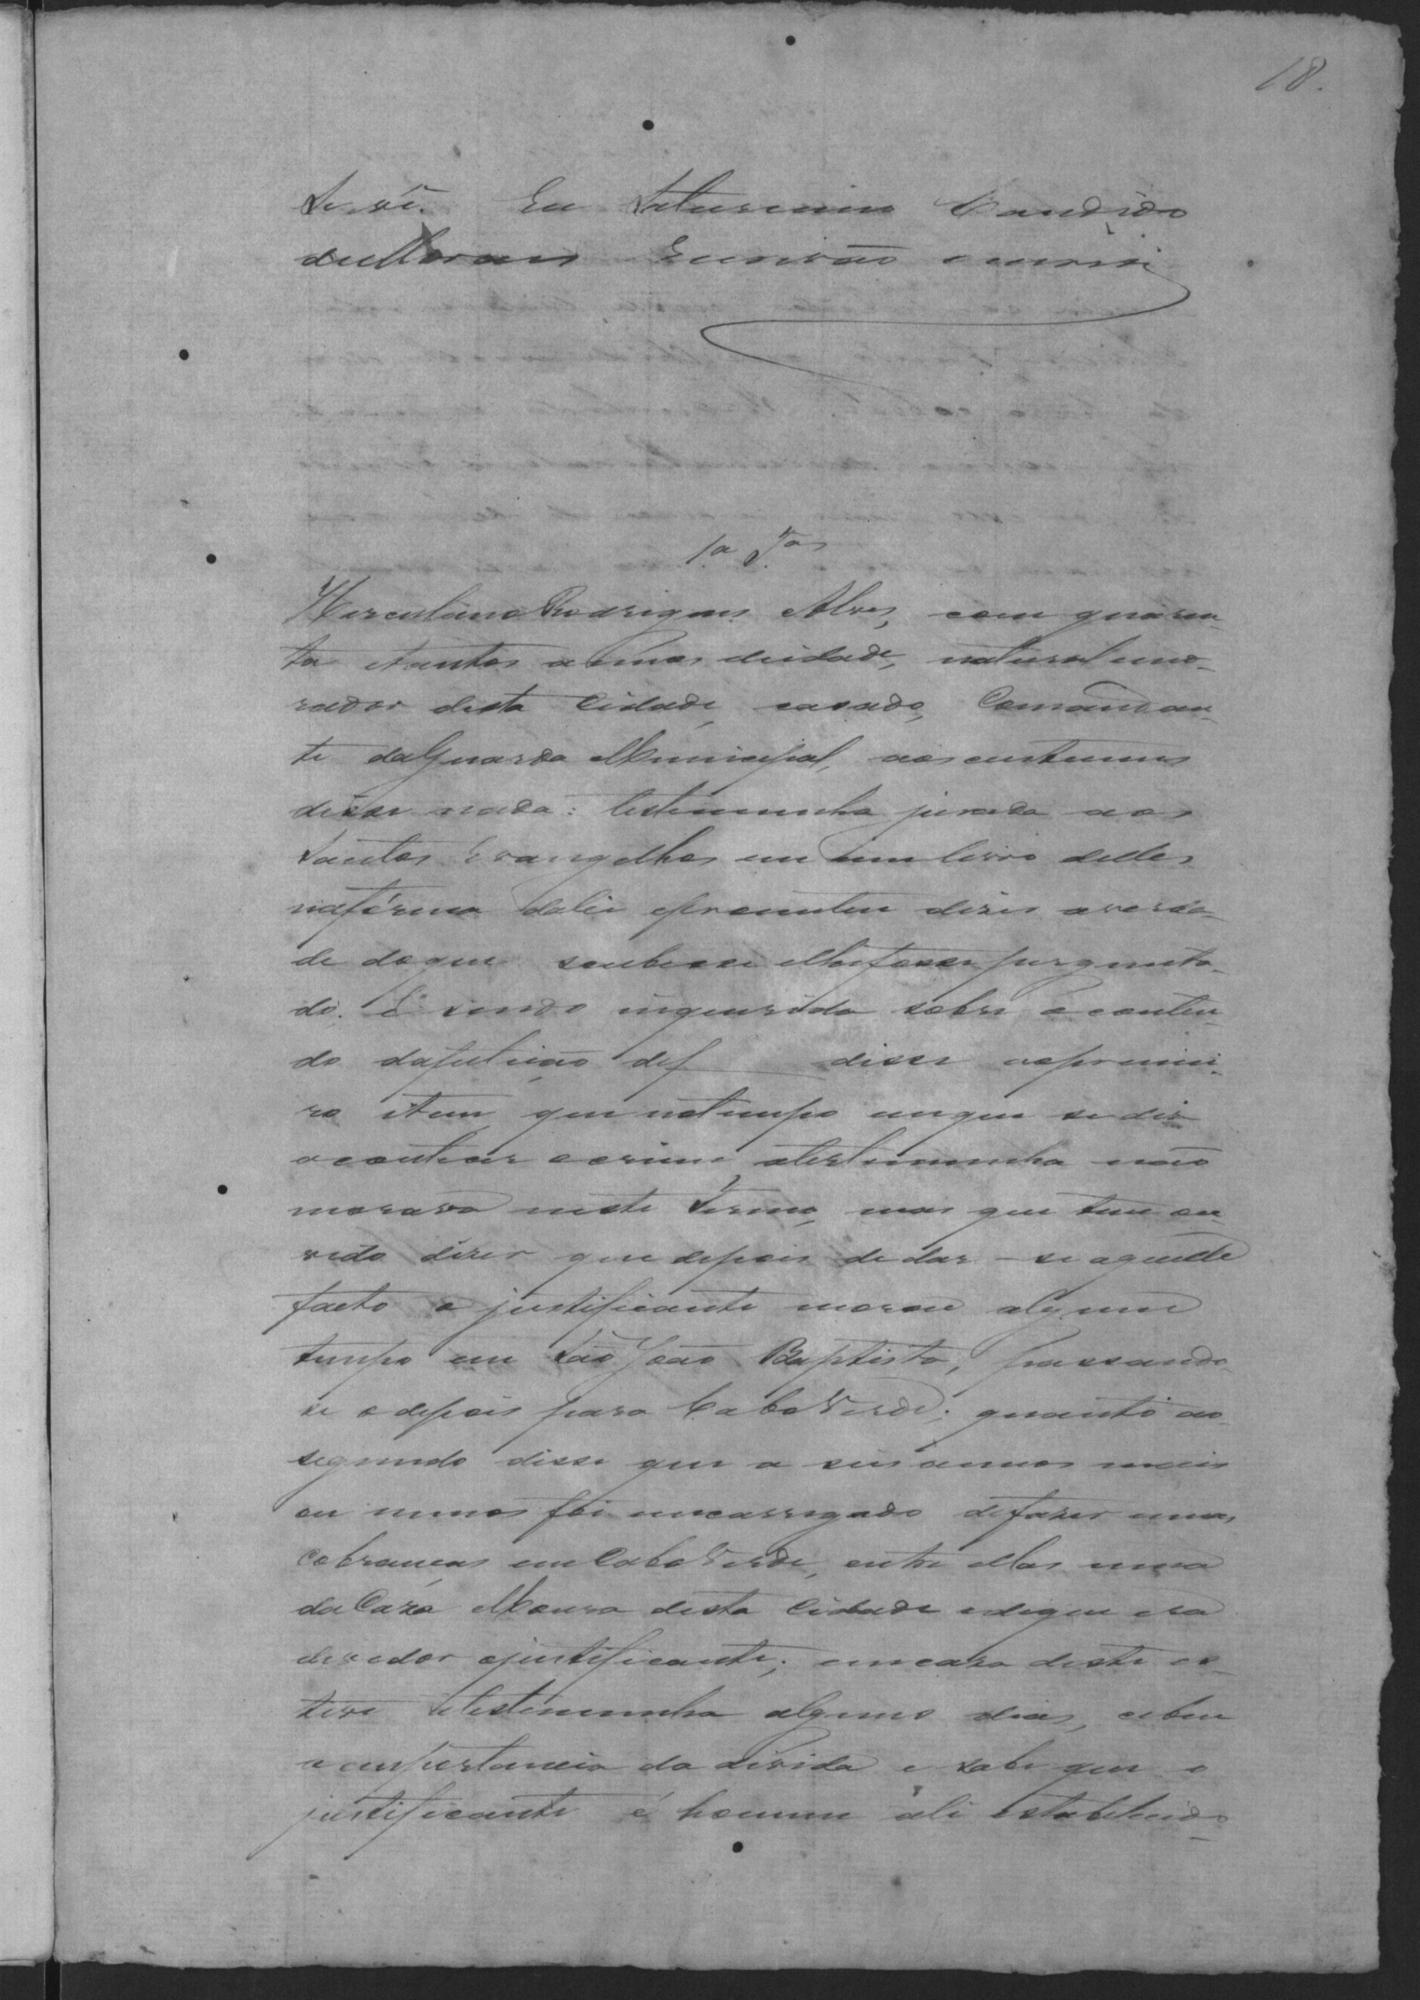 18.
se vê. Eu Saturnino Candido
de Moraes Escrivão o escrevi
1.a T.a
Herculano Rodrigues Alves, com quaren-
ta e tantos annos deidade, natural emo-
rador desta Cidade, casado, Comandan-
te da Guarda Municipal, aos custumes
disse nada: testimunha jurada aos
Santos Evangelhos em um livro delles
na fórma da lei eprometeu dizer averda-
de doque soubesse elhefosse pergunta-
do. E sendo inquerida sobre o conteu-
do dapetição de f disse ao primei-
ro item que no tempo em que se diz
acontecer o crime atestimunha não
morava neste Termo, mas que tem ou-
vido dizer que depois de dar-se aquelle
facto o justificante morou algum
tempo em São João Baptista, passando-
se depois para Cabo Verde; quanto ao
segundo disse que a seis annos mais
ou menos foi encarregado defazer umas
cobranças em Cabo Verde, entre ellas uma
da Caza Moura desta Cidade edeque era
devedor ojustificante; em caza deste es-
teve atestimunha alguns dias,
a importancia da divida e sabe que o
justificante é homem ali estabelecido